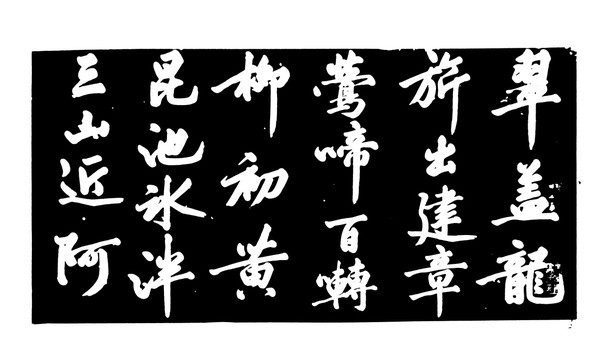 翠盖龍
旂出建章
鶯啼百囀
柳初黄
昆池氷泮
三山近阿